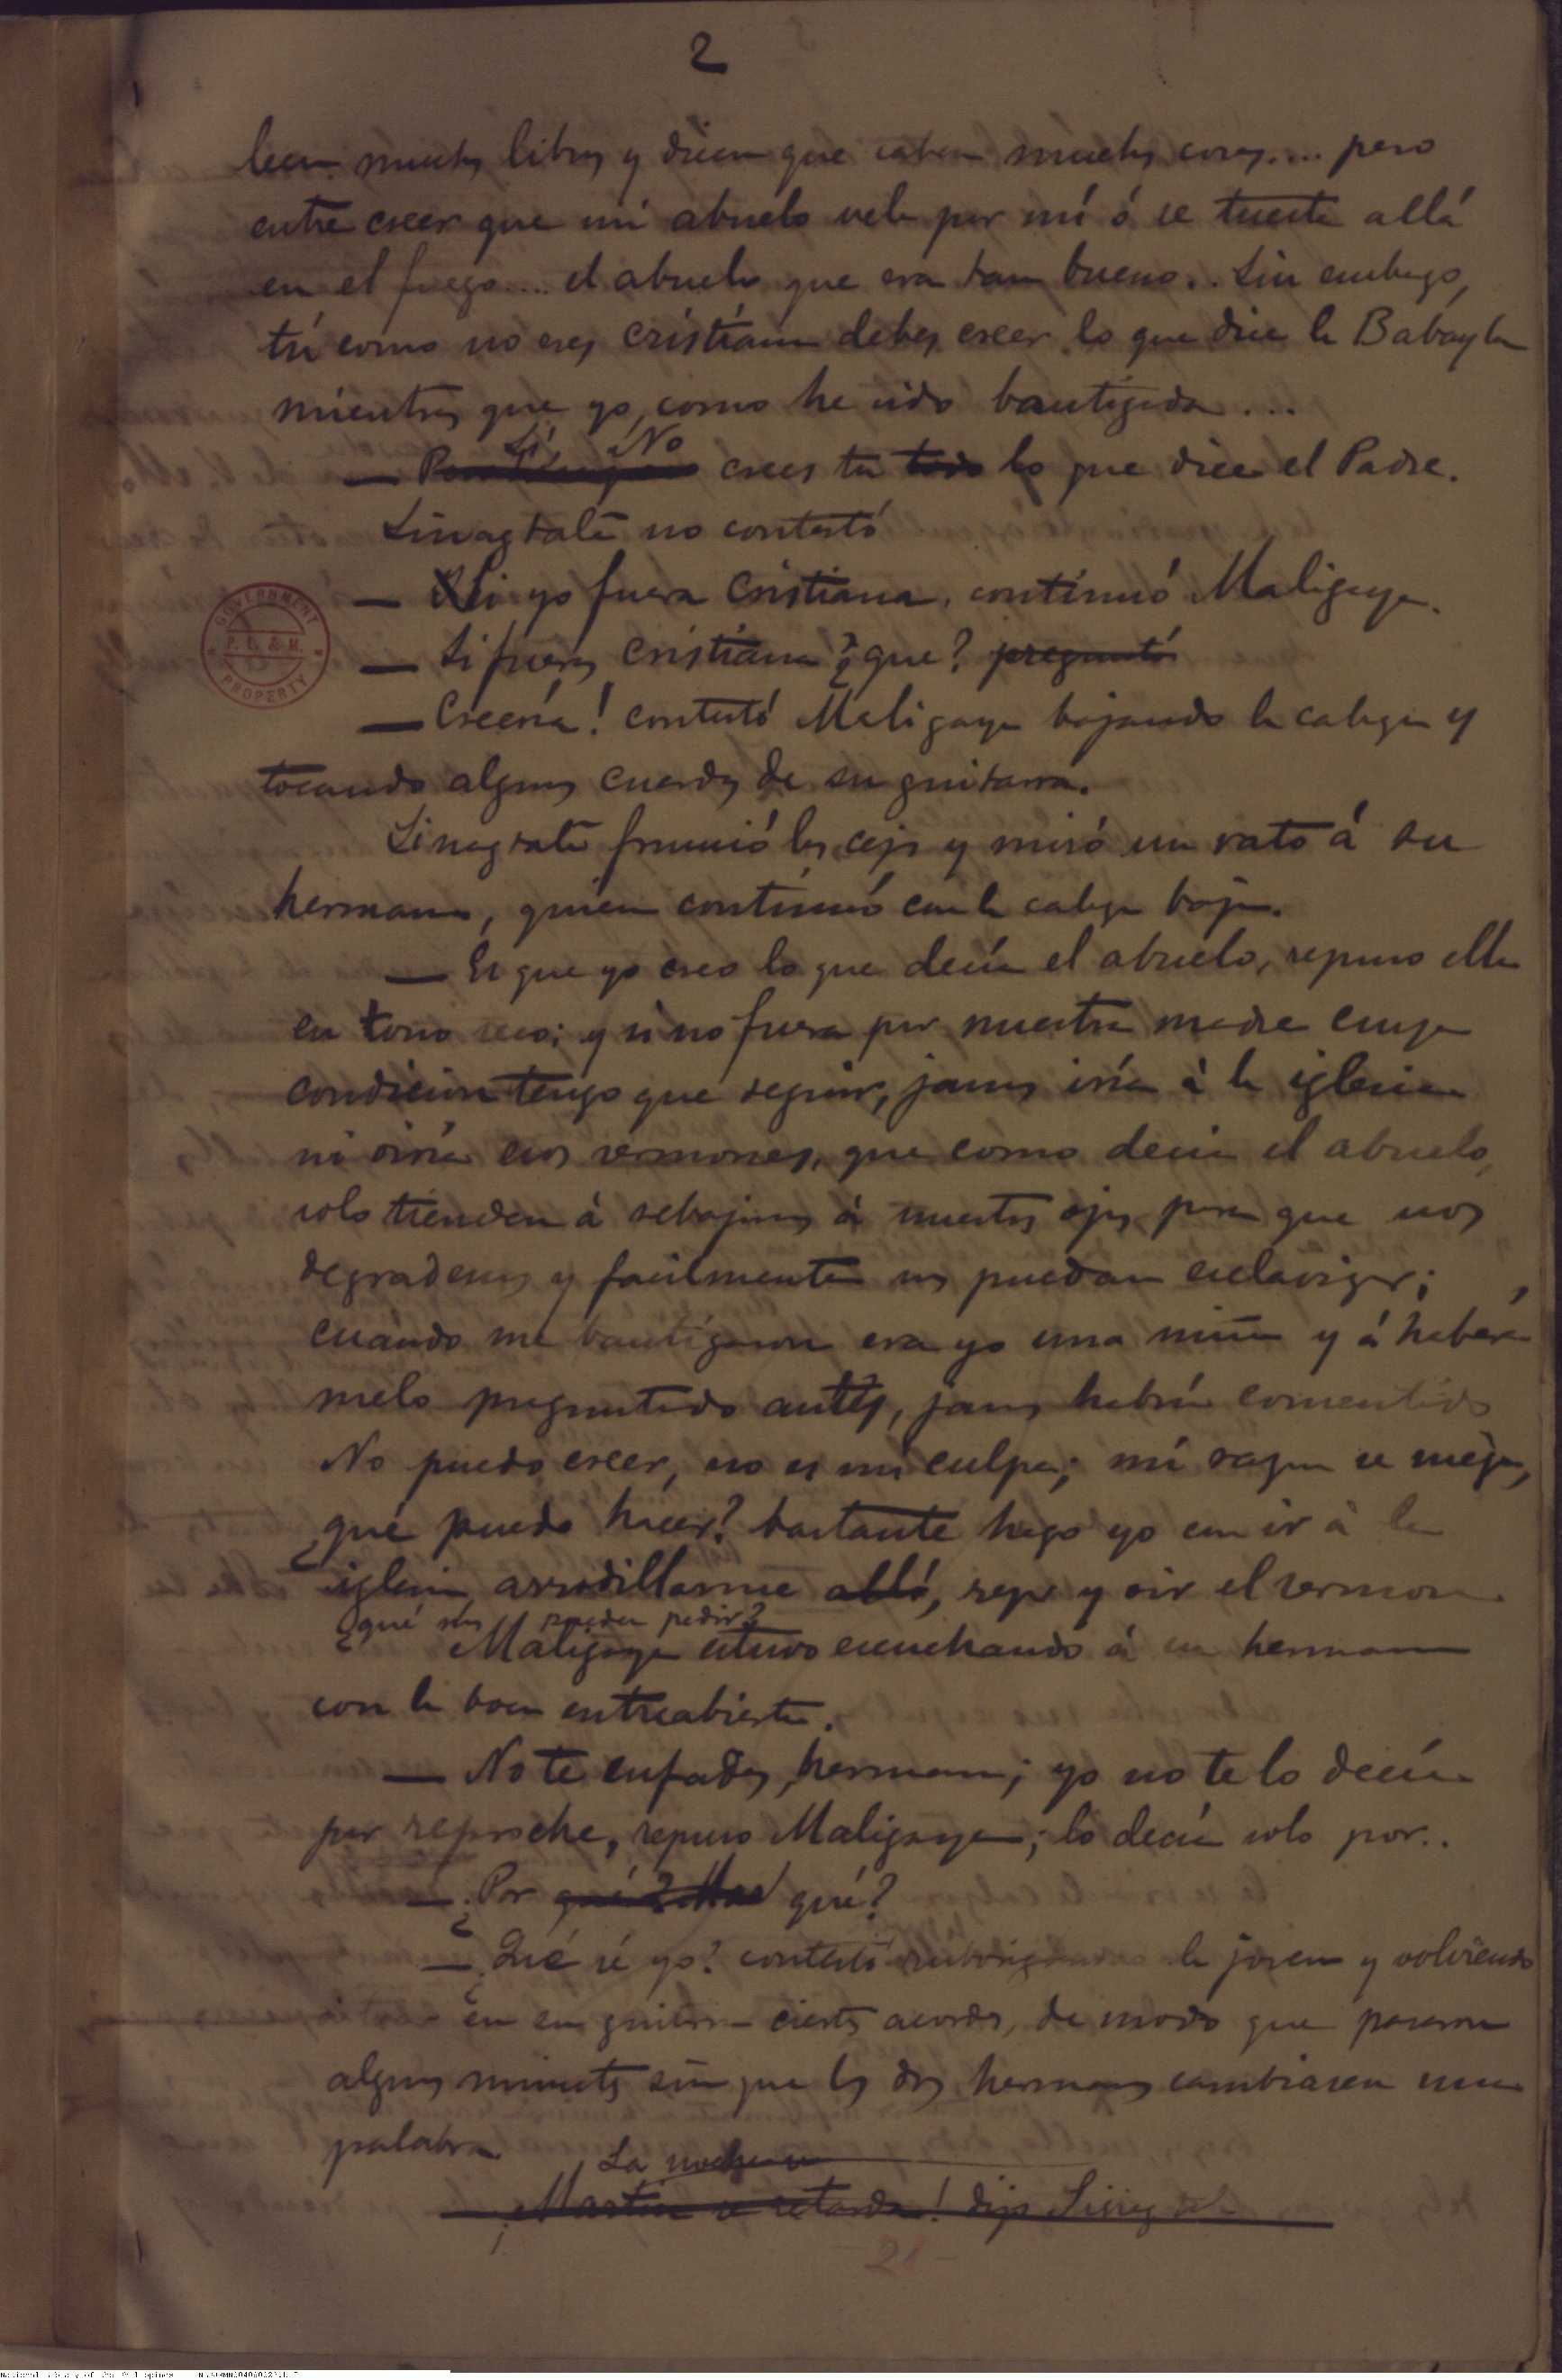 2
leen muchos libros y dicen que saben muchas cosas.... pero
entre creer que mi abuelo vela por mí ó se tuesta allá
en el fuego.... el abuelo que era tan bueno... Sin embargo,
tú como no eres cristiana debes creer lo que dice la Babaylan
mientras que yo, como he sido bautizada....
Si, ¿No
— crees tu todo lo que dice el Padre.
Sinagtala no contestó
— Si yo fuera cristiana, continuó Maligaya.
— Si fueras cristiana ¿que? preguntó
— Creería! contestó Maligaya bajando la cabeza y
tocando algunas cuerdas de su guitarra.
Sinagtala frunció las cejas y miró un rato á su
hermana, quien continuó con la cabeza baja.
— Es que yo creo lo que decía el abuelo, repuso ella
en tono seco; y si no fuera por nuestra madre cuya
condicion tengo que seguir, jamas iría á la iglesia
ni oiría esos sermones, que como decía el abuelo,
solo tienden á rebajarnos á nuestros ojos para que nos
degrademos y facilmente nos puedan esclavizar;
cuando me bautizaron era yo una niña y á haber
melo preguntado antes, jamas habría consentido
No puedo creer, no es mi culpa; mi razon se niega,
¿qué puedo hacer? bastante hago yo con ir á la
iglesia, arrodillarme allá, rezar y oir el sermon.
¿qué mas pueden pedir?
Maligaya estuvo escuchando á su hermana
con la boca entreabierta.
— No te enfades, hermana; yo no te lo decía
por reproche, repuso Maligaya; lo decía solo por..
— ¿Por qué? qué?
— ¿Qué sé yo? contestó la joven y volviendo
en su guitarra ciertos acordes, de modo que pasaron
algunos minutos sin que las dos hermanas cambiasen una
palabra
La noche
— ¡Martin se retarda! dijo Sinagtala
21
GOVERNMENT
P. L. & M.
PROPERTY